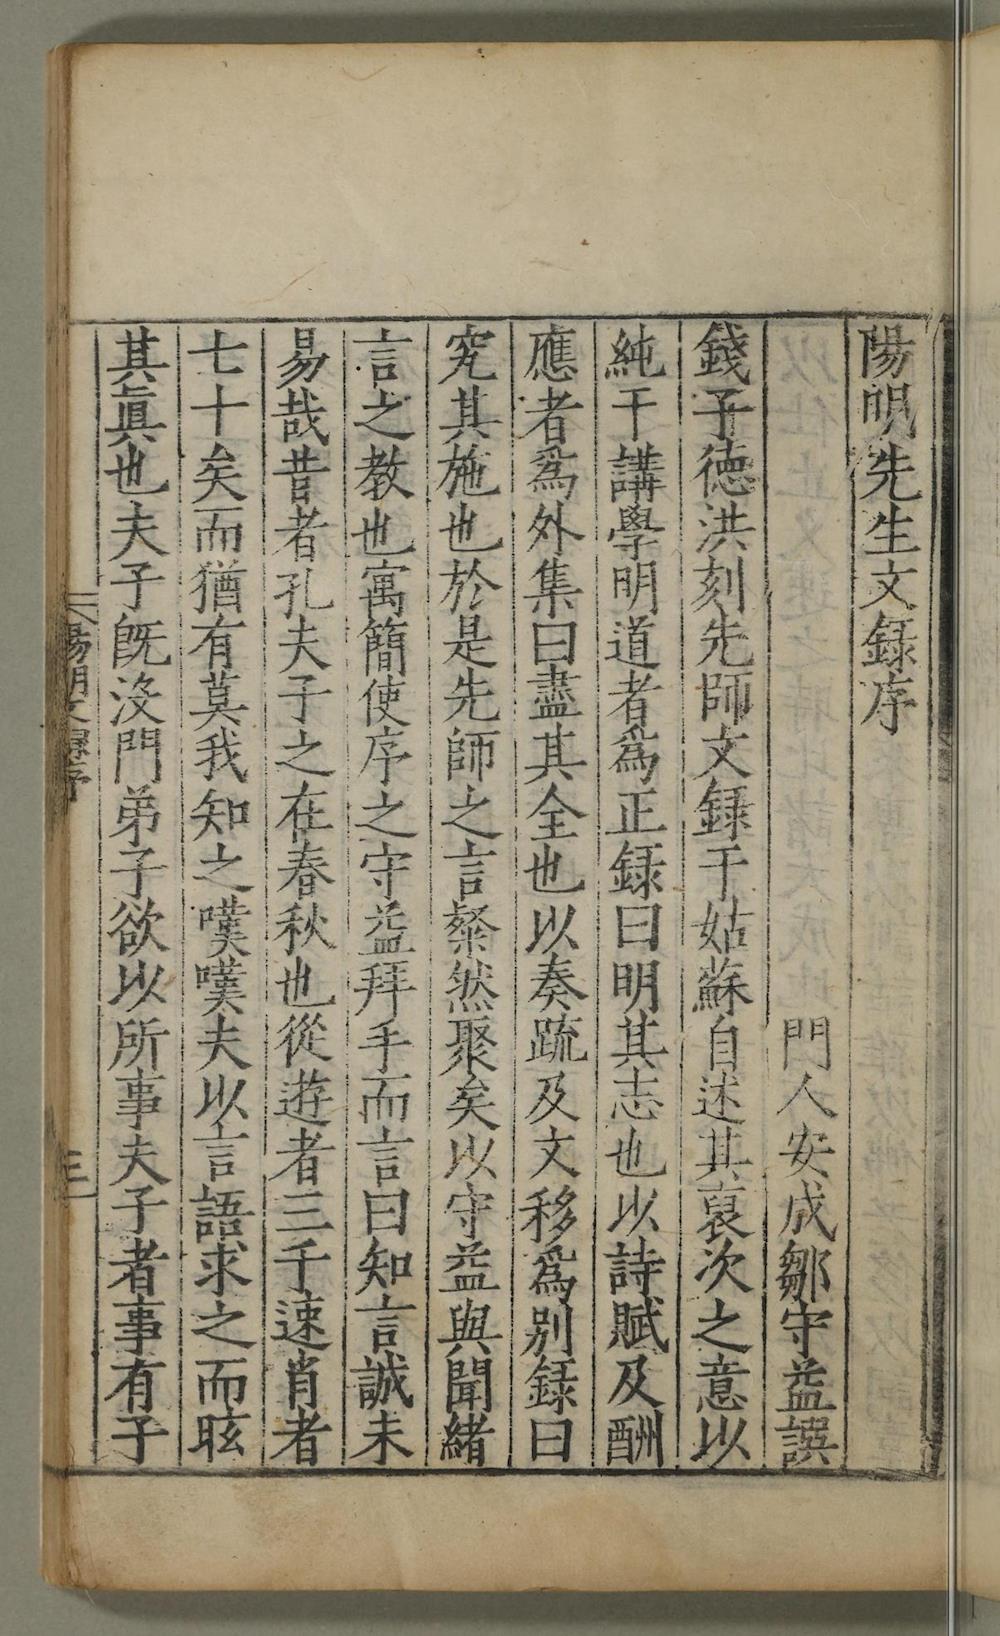 陽明先生文録序
門人安成鄒守益譔
錢子德洪刻先師文録于姑蘇自述其裒次之意以
純于講學明道者爲正録曰明其志也以詩賦及酬
應者爲外集曰盡其全也以奏疏及文移爲别録曰
究其施也於是先師之言粲然聚矣以守益與聞緒
言之教也寓簡使序之守益拜手而言曰知言誠未
易哉昔者孔夫子之在春秋也從遊者三千速肖者
七十矣而猶有莫我知之嘆嘆夫以言語求之而眩
其眞也夫子旣没門弟子欲以所事夫子者事有子
陽明文録序
三